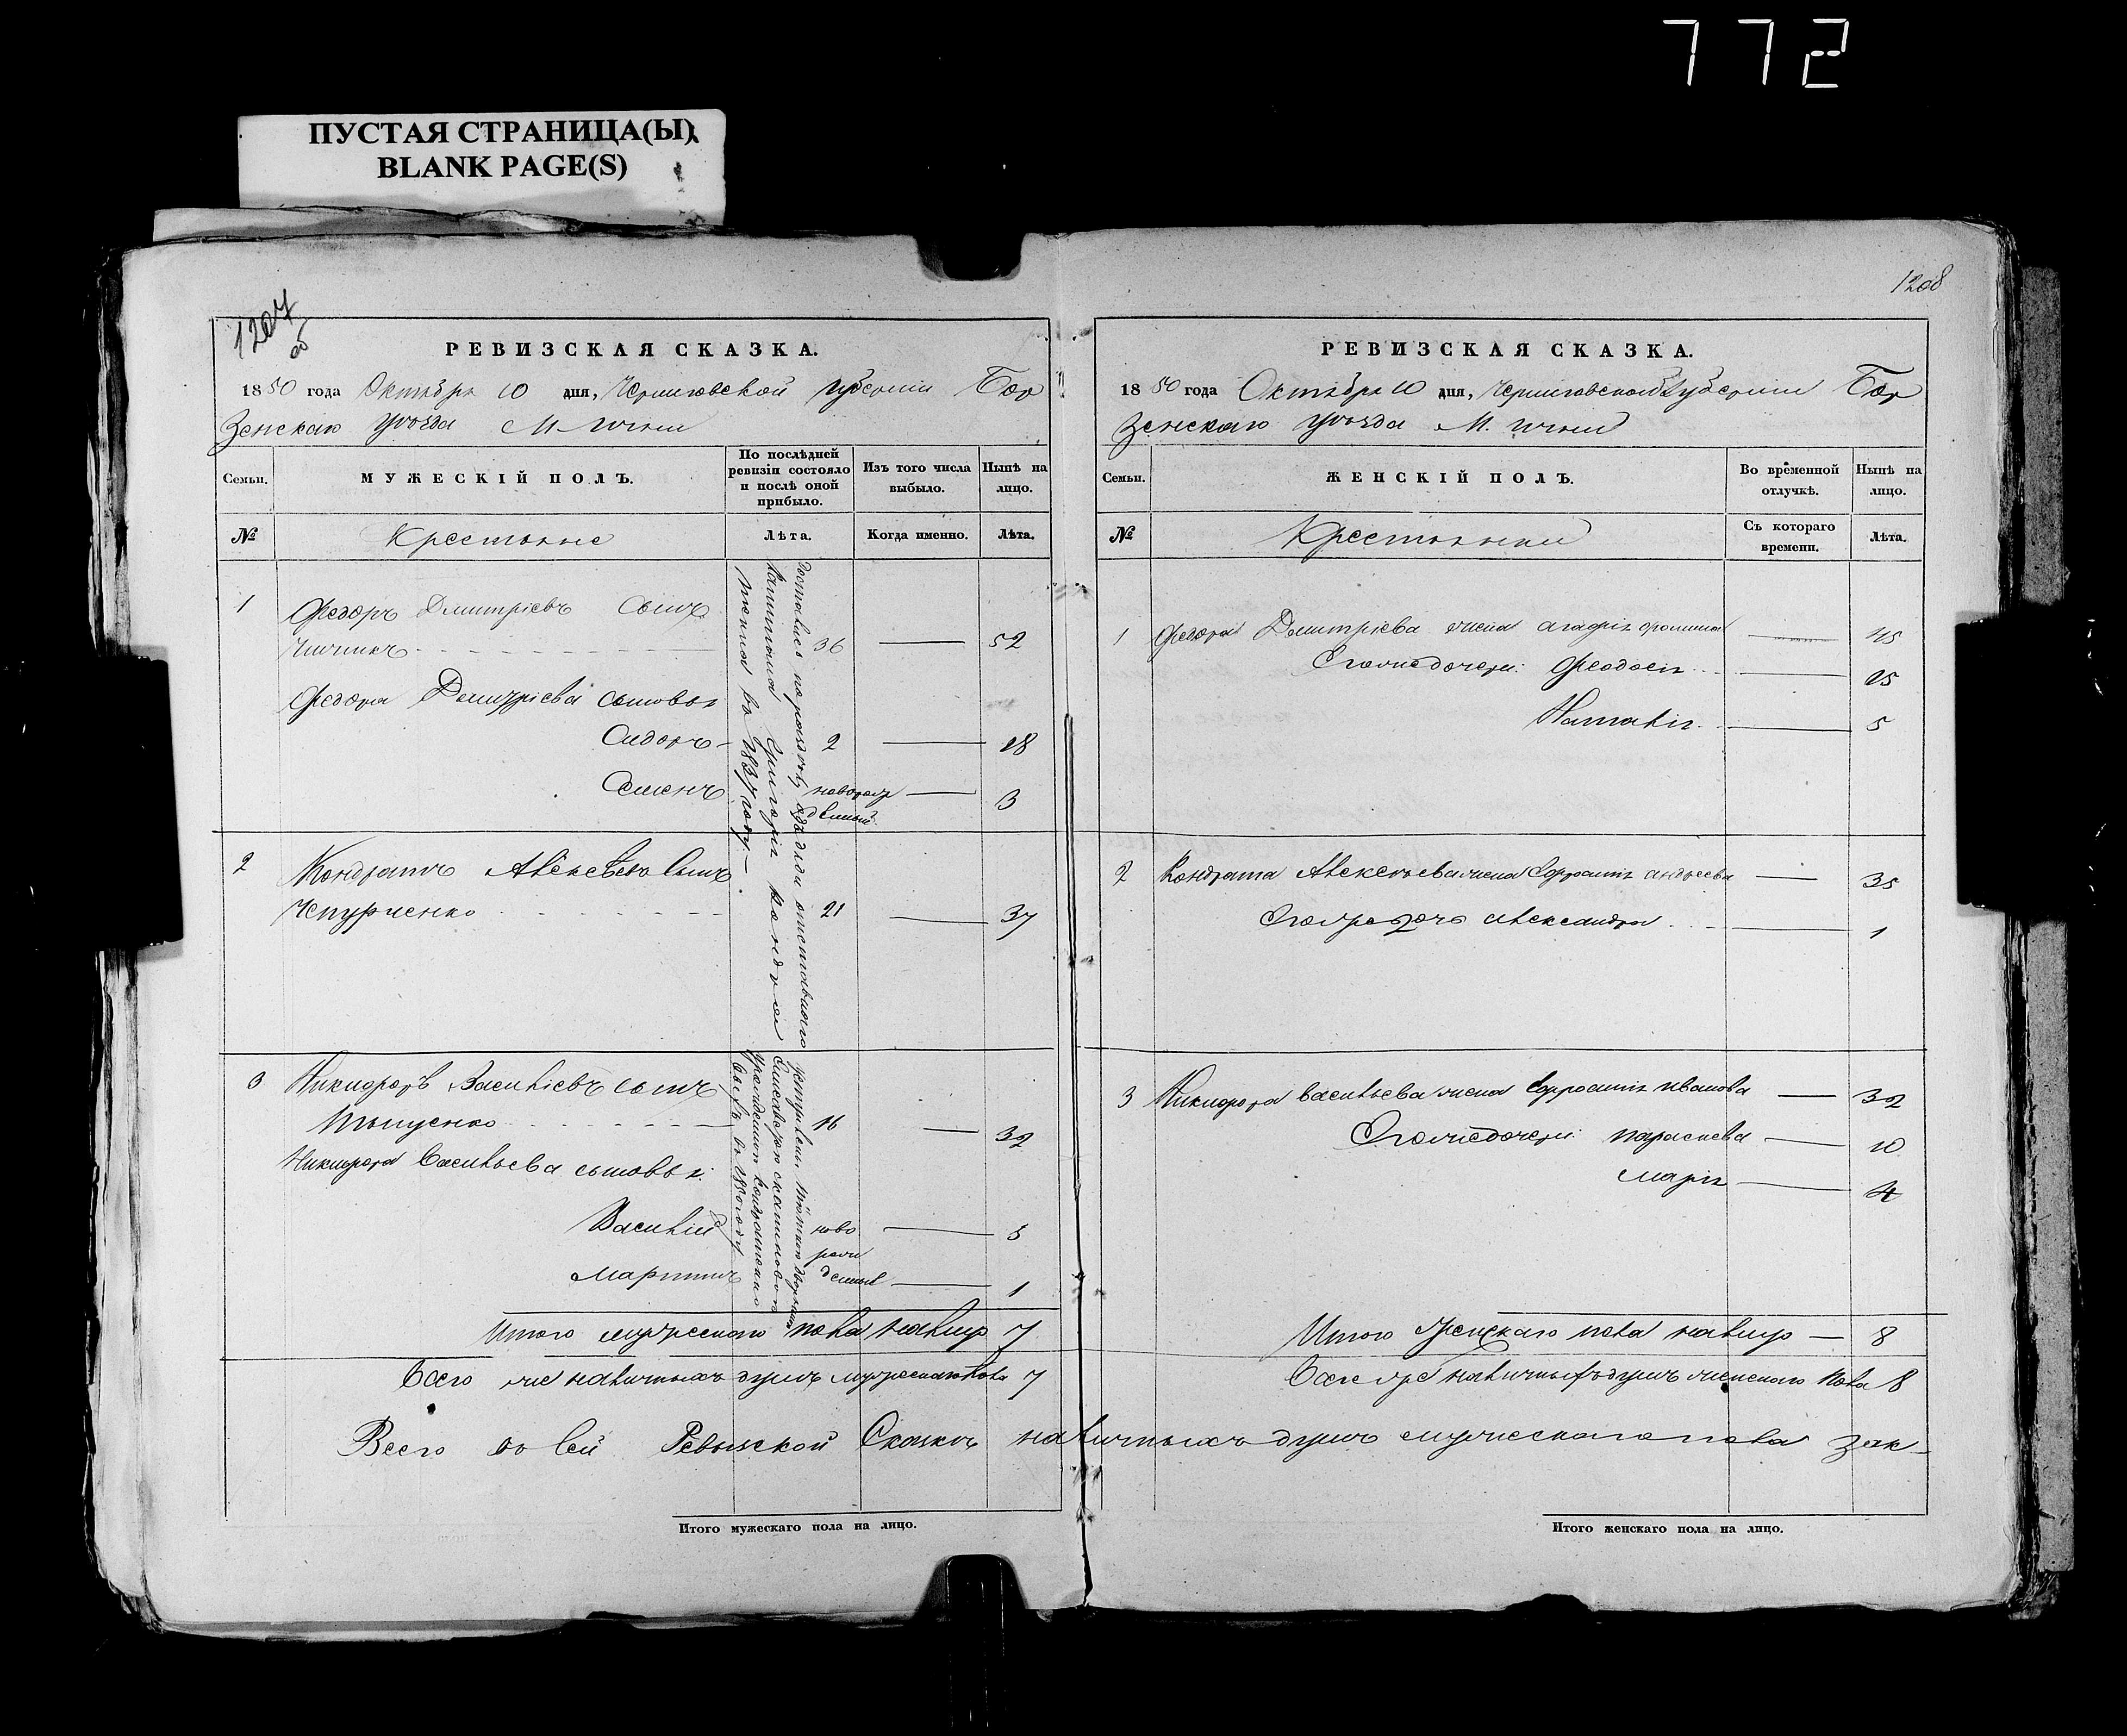 772
ПУСТАЯ СТРАНИЦА(Ы)
BLANK PAGE(S)
1207
об
РЕВИЗСКАЯ СКАЗКА.
1850 года Октября 10 дня, Черниговской губерніи Бор
зенскаго уѣзда М. Ични
Семьи.
МУЖЕСКІЙ ПОЛЪ.
По послѣдней ревизіи состояло и послѣ оной прибыло.
Изъ того числа выбыло.
Нынѣ на лицо.
№
Крестьяне
Лѣта.
Когда именно.
Лѣта.
1 Федоръ Дмитріевъ сынъ
36 — 52
Федора Дмитріева сыновья
Сидоръ — 2 — 18
Семенъ новорож — 3
денный
2 Кондратъ Алексѣевъ сынъ
Чепурненко 21 — 37
3 Никифоръ Васильевъ сынъ
16 — 32
Никифора Васильева сыновья:
Василій ново — 5
рож
Мартинъ денные — 1
Достались по раздѣлу
въ 1837 году.
Итого мужескаго пола налицо 7
Всего же наличныхъ душъ мужескаго пола 7
Всего по сей Ревизской Сказкѣ наличныхъ душъ мужескаго пола
Итого мужескаго пола на лицо.
1208
РЕВИЗСКАЯ СКАЗКА.
1850 года Октября 10 дня, Черниговской губерніи Бор
зенскаго уѣзда М. Ични
Семьи.
ЖЕНСКІЙ ПОЛЪ.
Во временной отлучкѣ.
Нынѣ на лицо.
№
Крестьянки
Съ котораго времени.
Лѣта.
1 Федора Дмитріева жена Агафія — 45
Его же дочери: Феодосія — 15
Наталія — 5
2 Кондрата Алексѣева жена Ефросинія Андреева — 35
Его же дочь Александра — 1
3 Никифора Васильева жена Ефросинія Иванова — 32
Его же дочери: Параскева — 10
Марія — 4
Итого женскаго пола налицо — 8
Всего же наличныхъ душъ женскаго пола 8
Итого женскаго пола на лицо.